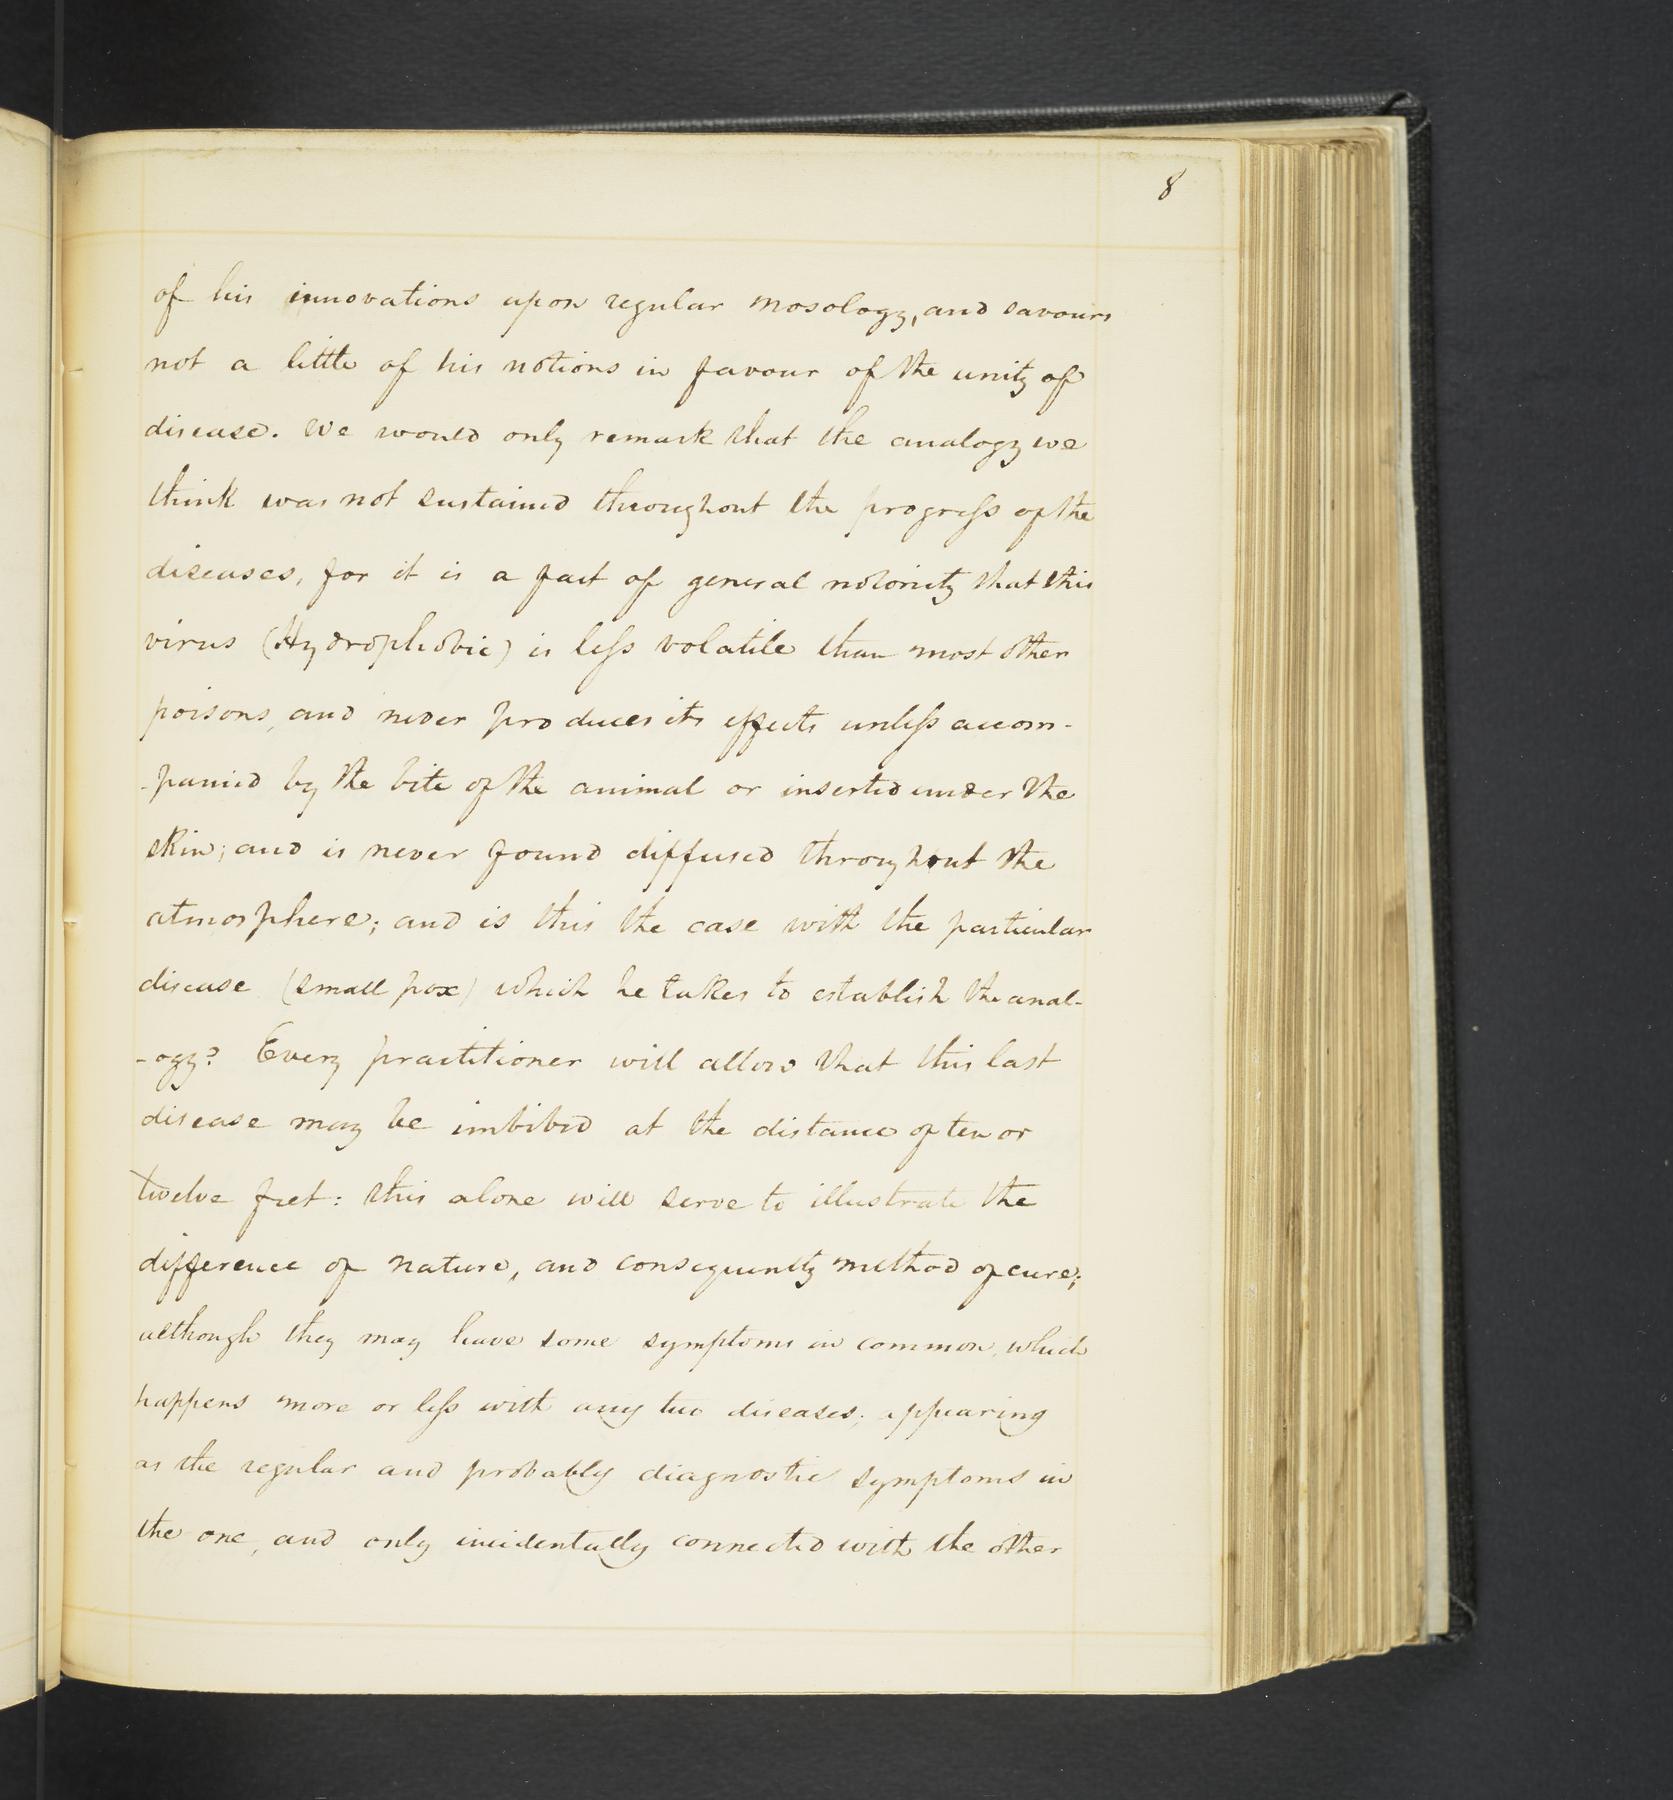 8
of his innovations upon regular nosology, and savours
not a little of his notions in favour of the unity of
disease. We would only remark that the analogy we
think was not sustained throughout the progress of the
diseases, for it is a fact of general notoriety that this
virus (Hydrophobic) is less volatile than most other
poisons, and never produces its effects unless accom-
-panied by the bite of the animal or inserted under the
skin; and is never found diffused throughout the
atmosphere; and is this the case with the particular
disease (small pox) which he takes to establish the anal-
-ogy? Every practitioner will allow that this last
disease may be imbibed at the distance of ten or
twelve feet: this alone will serve to illustrate the
difference of nature, and consequently method of cure;
although they may have some symptoms in common, which
happens more or less with any two diseases; appearing
as the regular and probably diagnostic symptoms in
the one, and only incidentally connected with the other